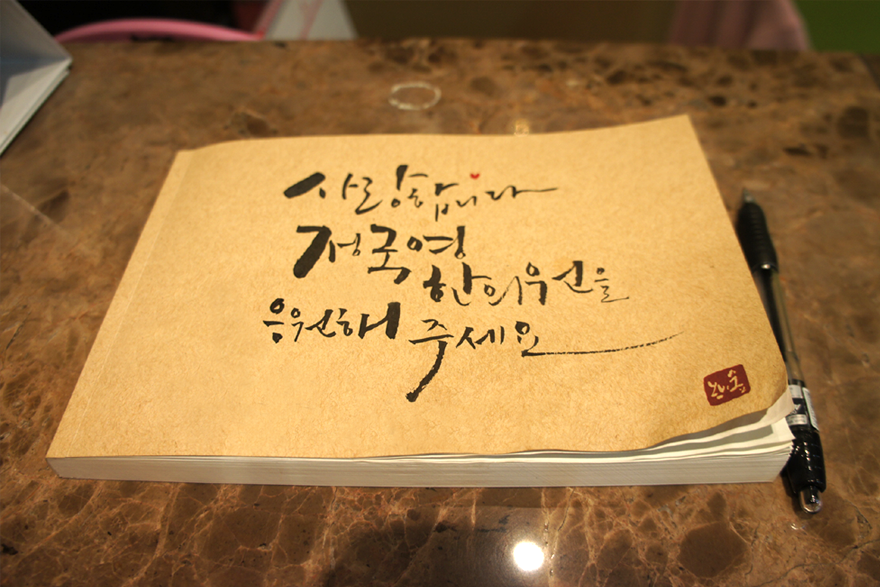 사랑합니다
정국영
한의원을
응원해 주세요